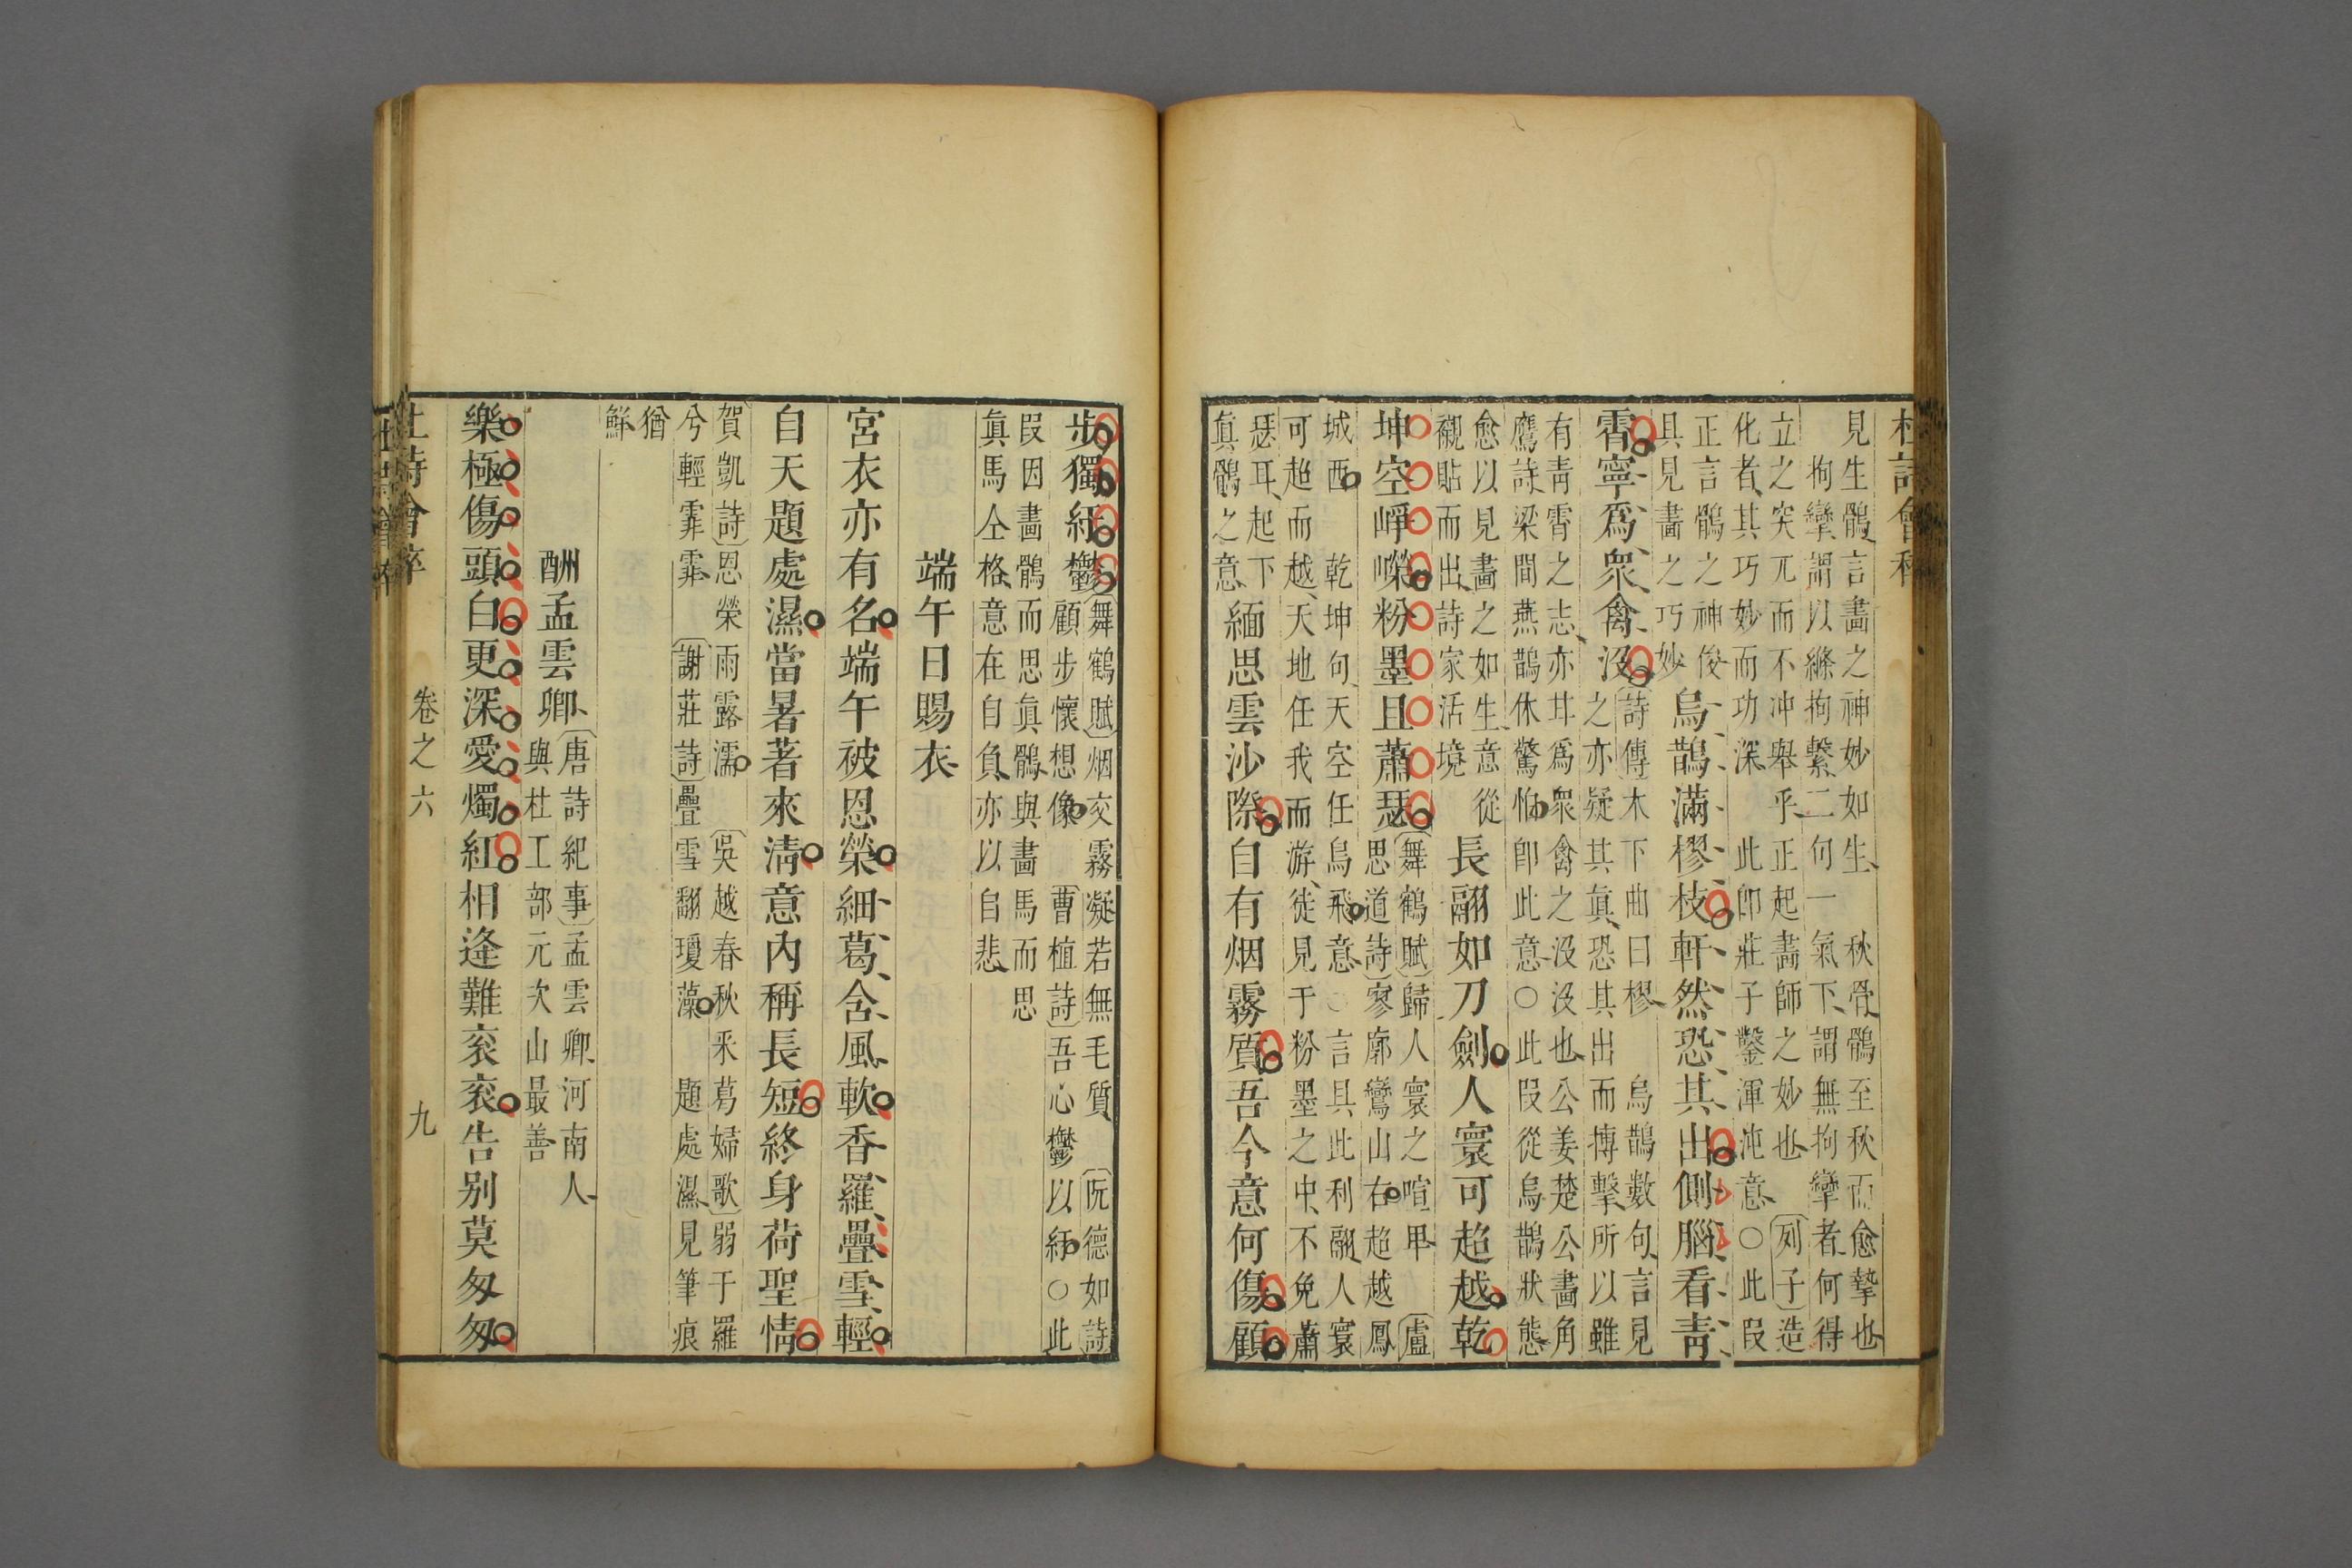 杜詩會稡
見生鶻言畫之神妙如生 秋骨鶻至秋而愈摯也
拘攣謂以絛拘繫二句一氣下謂無拘攣者何得
立之突兀而不冲舉乎正起畫師之妙也〔列子〕造
化者其巧妙而功深 此卽莊子鑿渾沌意○此叚
正言鶻之神俊
具見畫之巧妙
烏鵲滿樛枝軒然恐其出側腦看靑
霄寧爲衆禽沒
〔詩傳〕木下曲曰樛 烏鵲數句言見
之亦疑其眞恐其出而搏擊所以雖
有靑霄之志亦甘爲衆禽之沒沒也公姜楚公畫角
鷹詩梁間燕鵲休驚怕卽此意○此叚從烏鵲狀態
愈以見畫之如生意從
襯貼而出詩家活境
長翮如刀劍人寰可超越乾
坤空崢嶸粉墨且蕭瑟
〔舞鶴賦〕歸人寰之喧甲 〔盧
思道詩〕寥廓鸞山右超越鳳
城西 乾坤句天空任鳥飛意○言具此利翮人寰
可超而越天地任我而游徒見于粉墨之中不免蕭
瑟耳起下
眞鶻之意
緬思雲沙際自有烟霧質吾今意何傷顧
步獨紆鬱
〔舞鶴賦〕烟交霧凝若無毛質 〔阮德如詩〕
顧步懷想像 〔曹植詩〕吾心鬱以紆○此
叚因畫鶻而思眞鶻與畫馬而思
眞馬仝格意在自負亦以自悲
端午日賜衣
宮衣亦有名端午被恩榮細葛含風軟香羅疊雪輕
自天題處濕當暑著來淸意內稱長短終身荷聖情
〔賀凱詩〕恩榮雨露濡 〔吳越春秋采葛婦歌〕弱于羅
兮輕霏霏 〔謝莊詩〕疊雪翻瓊藻 題處濕見筆痕
猶
鮮
酬孟雲卿
〔唐詩紀事〕孟雲卿河南人
與杜工部元次山最善
樂極傷頭白更深愛燭紅相逢難衮衮告别莫匆匆
杜詩會稡 卷之六 九